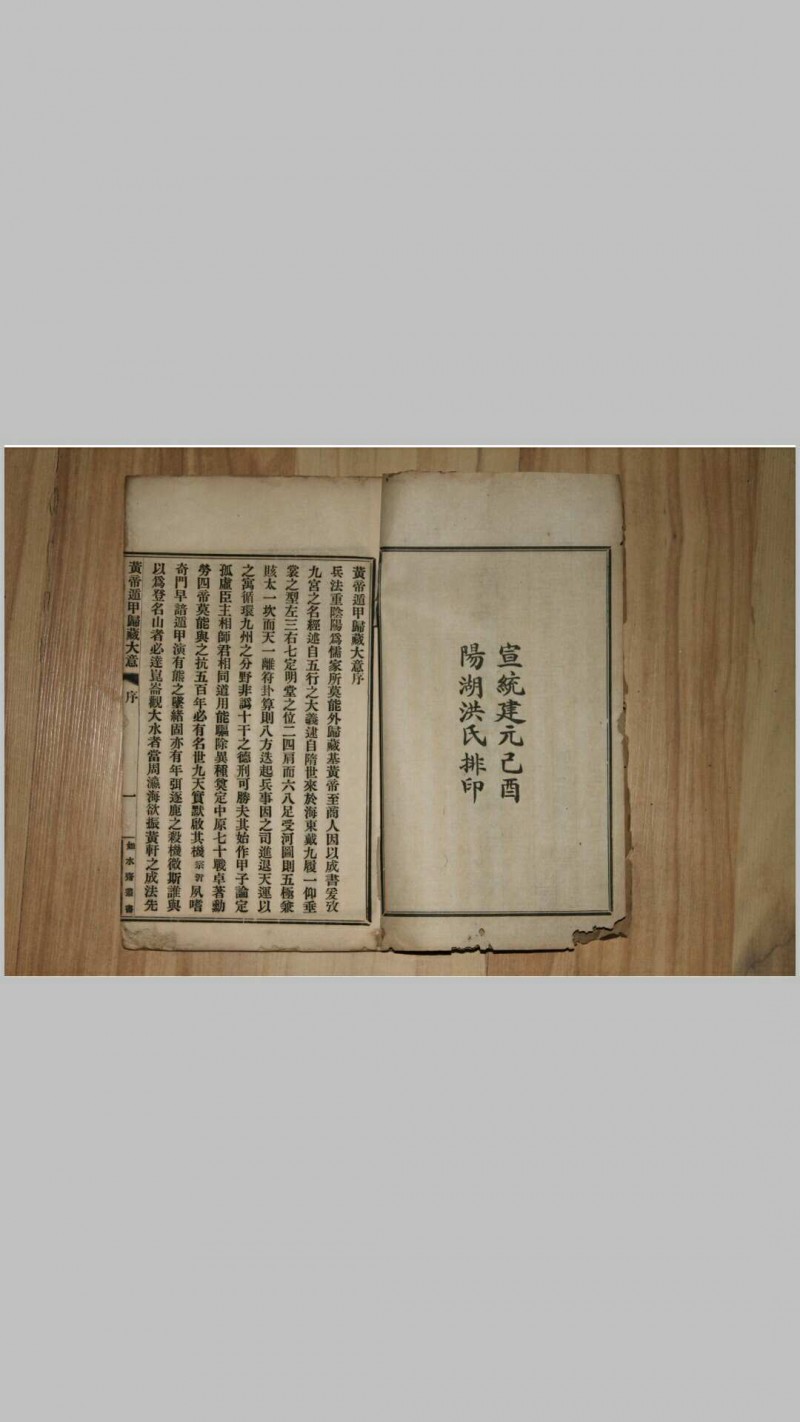 宣統建元己酉
陽湖洪氏排印
黃帝遁甲歸藏大意序
兵法重陰陽爲儒家所莫能外歸藏基黃帝至商人因以成書爰攷
九宮之名經述自五行之大義建自隋世來於海東戴九履一仰垂
裳之型左三右七定明堂之位二四肩而六八足受河圖則五極兼
賅太一坎而天一離符卦算則八方迭起兵事因之司進退天運以
之寓循環九州之分野非譌十干之德刑可勝夫其始作甲子論定
孤虛臣主相師君相同道用能驅除異種奠定中原七十戰卓著勳
勞四帝莫能與之抗五百年必有名世九天實默啟其機宗哲夙嗜
奇門早諳遁甲演有熊之墜緒固亦有年弭逐鹿之殺機微斯誰與
以爲登名山者必達崑崙觀大水者當周瀛海欲振黃軒之成法先
黃帝遁甲歸藏大意 序 一 如水齋叢書